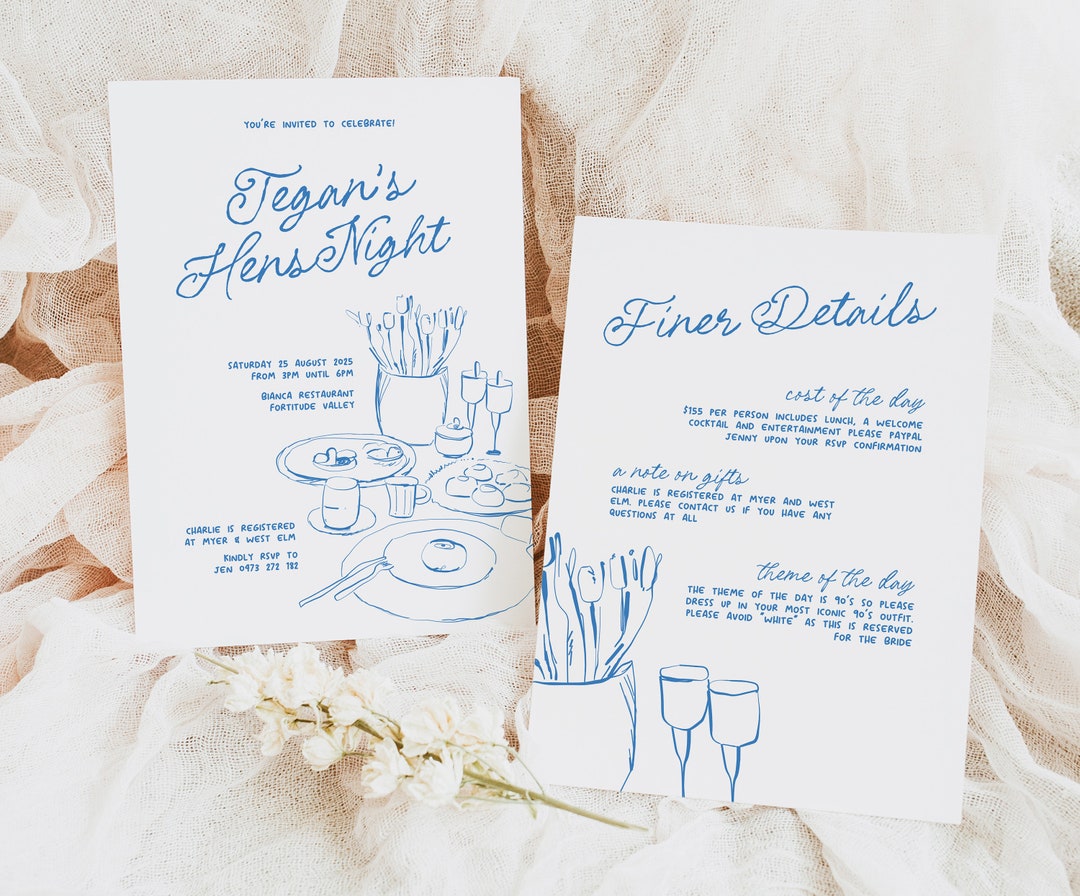 YOU'RE INVITED TO CELEBRATE!
Tegan's
Hens Night
SATURDAY 25 AUGUST 2025
FROM 3PM UNTIL 6PM
BIANCA RESTAURANT
FORTITUDE VALLEY
CHARLIE IS REGISTERED
AT MYER & WEST ELM
KINDLY RSVP TO
JEN 0473 272 182
Finer Details
cost of the day
$155 PER PERSON INCLUDES LUNCH, A WELCOME
COCKTAIL AND ENTERTAINMENT PLEASE PAYPAL
JENNY UPON YOUR RSVP CONFIRMATION
a note on gifts
CHARLIE IS REGISTERED AT MYER AND WEST
ELM. PLEASE CONTACT US IF YOU HAVE ANY
QUESTIONS AT ALL
theme of the day
THE THEME OF THE DAY IS 90'S SO PLEASE
DRESS UP IN YOUR MOST ICONIC 90'S OUTFIT.
PLEASE AVOID "WHITE" AS THIS IS RESERVED
FOR THE BRIDE